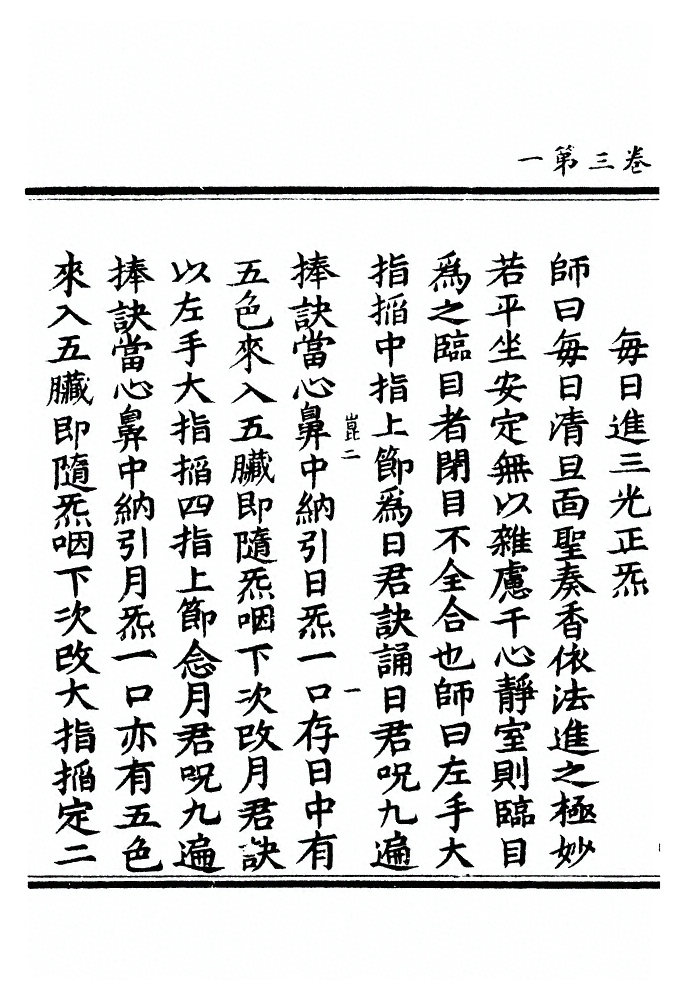 卷三第一
每日進三光正炁
師曰每日清旦面聖奏香依法進之極妙
若平坐安定無以雜慮干心靜室則臨目
爲之臨目者閉目不全合也師曰左手大
指搯中指上節爲日君訣誦日君呪九遍
崑二
一
捧訣當心鼻中納引日炁一口存日中有
五色來入五臟即隨炁咽下次改月君訣
以左手大指搯四指上節念月君呪九遍
捧訣當心鼻中納引月炁一口亦有五色
來入五臟即隨炁咽下次改大指搯定二